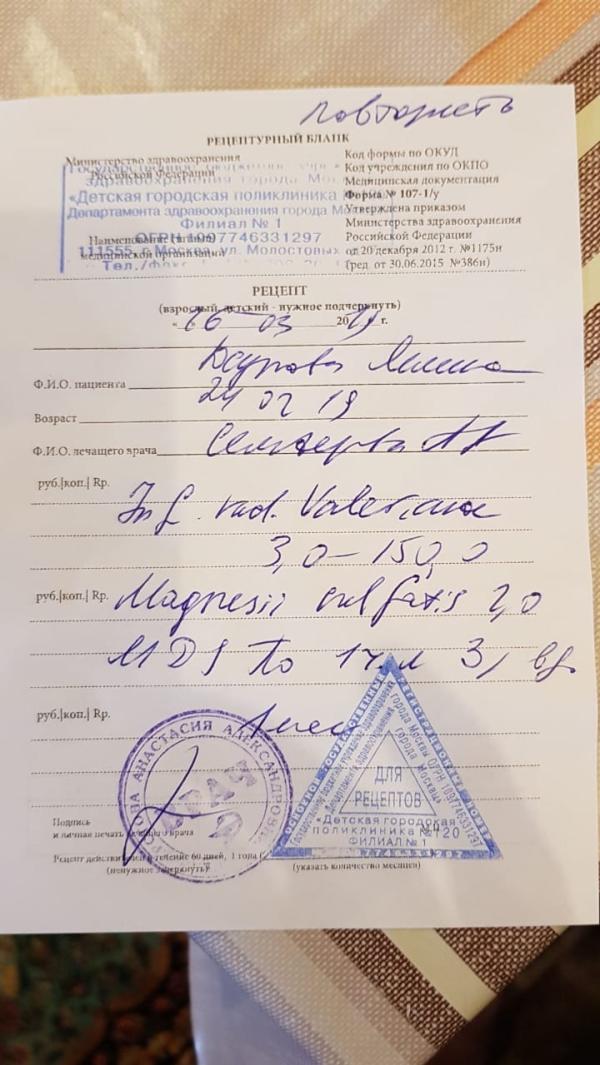 повторить
РЕЦЕПТУРНЫЙ БЛАНК
Министерство здравоохранения
Российской Федерации
Код формы по ОКУД
Код учреждения по ОКПО
Медицинская документация
Форма № 107-1/у
Утверждена приказом
Министерства здравоохранения
Российской Федерации
от 20 декабря 2012 г. №1175н
(ред от 30.06.2015 №386н)
здравоохранения города
«Детская городская поликлиника
Департамента здравоохранения города
Филиал № 1
ОГРН 1097746331297
Наименование (штамп)
медицинской организации
111555, г. Москва, ул. Молостовых
Тел./факс
РЕЦЕПТ
(взрослый, детский - нужное подчеркнуть)
« 16 03 2019 г.
Ф.И.О. пациента
Возраст 24 02 19
Ф.И.О. лечащего врача
руб.|коп.| Rp. Inf. rad. Valerianae
3,0 – 150,0
руб.|коп.| Rp. Magnesii sulfatis 2,0
MDS По 1 ч.л 3 р вд.
руб.|коп.| Rp.
АНАСТАСИЯ АЛЕКСАНДРОВНА
ВРАЧ
ДЛЯ
РЕЦЕПТОВ
«Детская городская
поликлиника № 120
ФИЛИАЛ № 1
города Москвы ОГРН 1097746331297
города Москвы»
Подпись
и личная печать лечащего врача
Рецепт действителен в течение 60 дней, 1 года (
(ненужное зачеркнуть)
(указать количество месяцев)